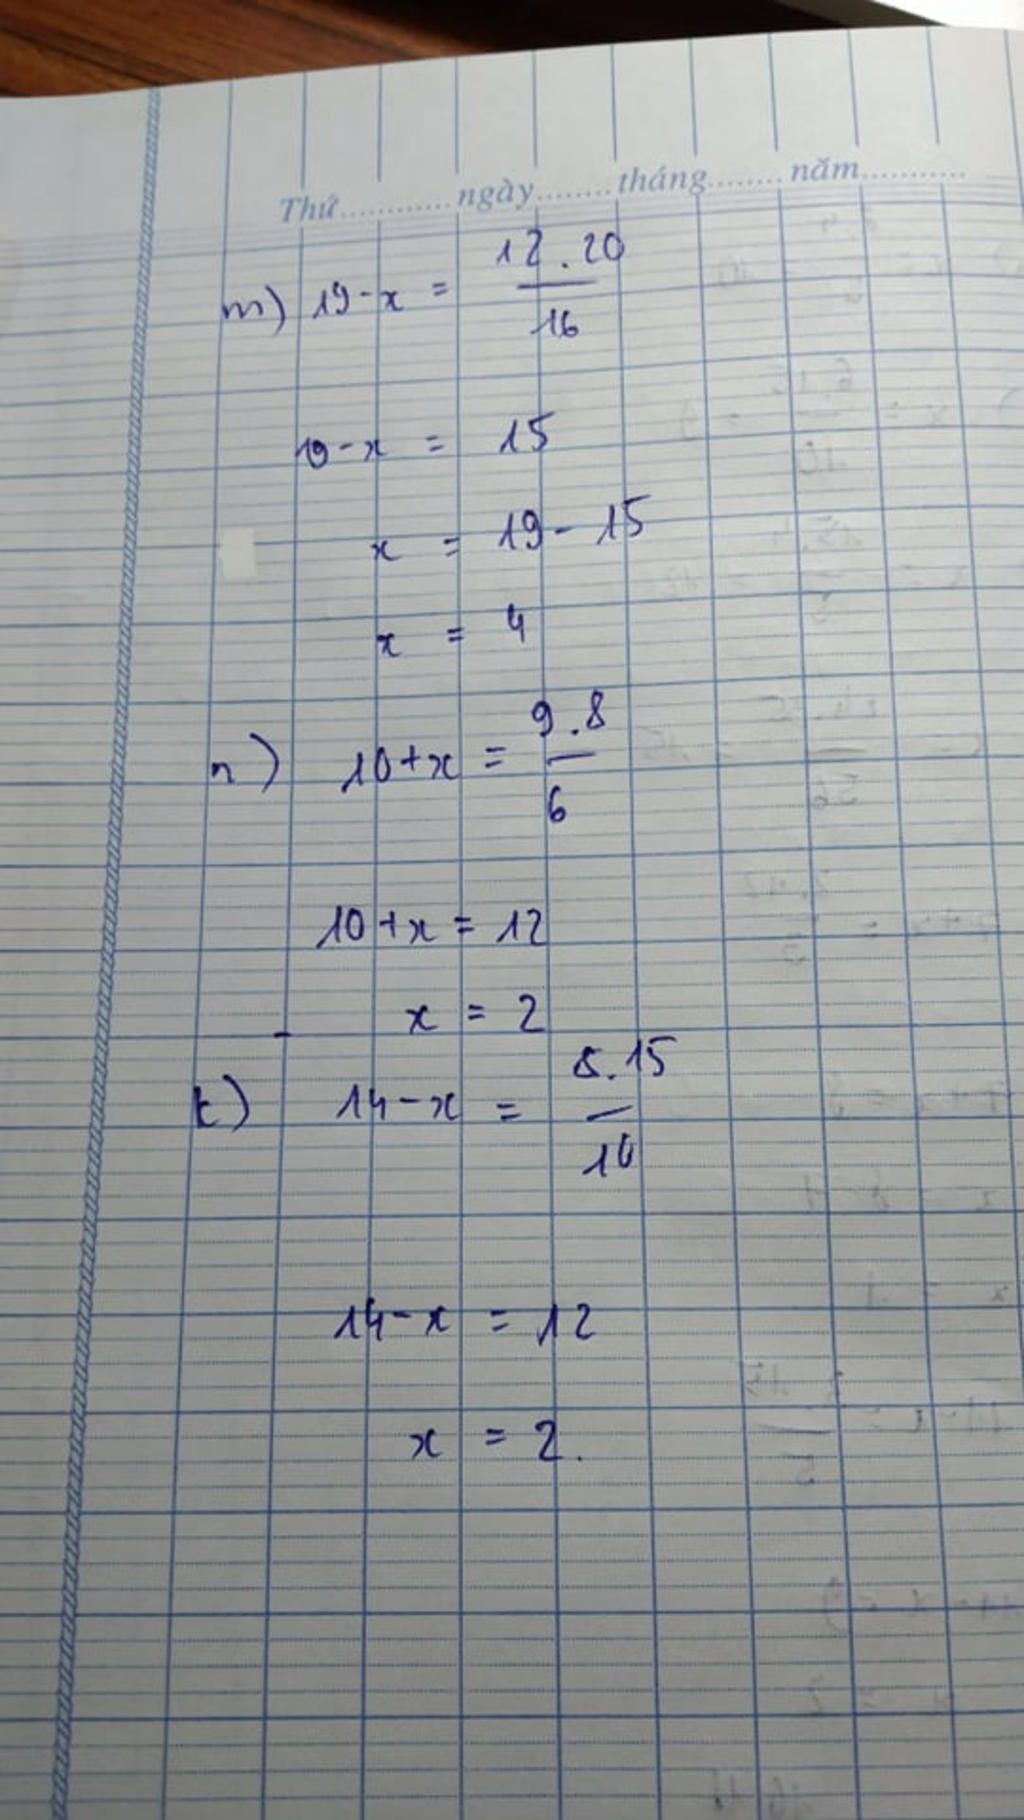 Thứ............ngày........tháng........năm...........
m) 19-x = 12.20/16
19-x = 15
x = 19-15
x = 4
n) 10+x = 9.8/6
10+x = 12
x = 2
t) 14-x = 8.15/10
14-x = 12
x = 2.